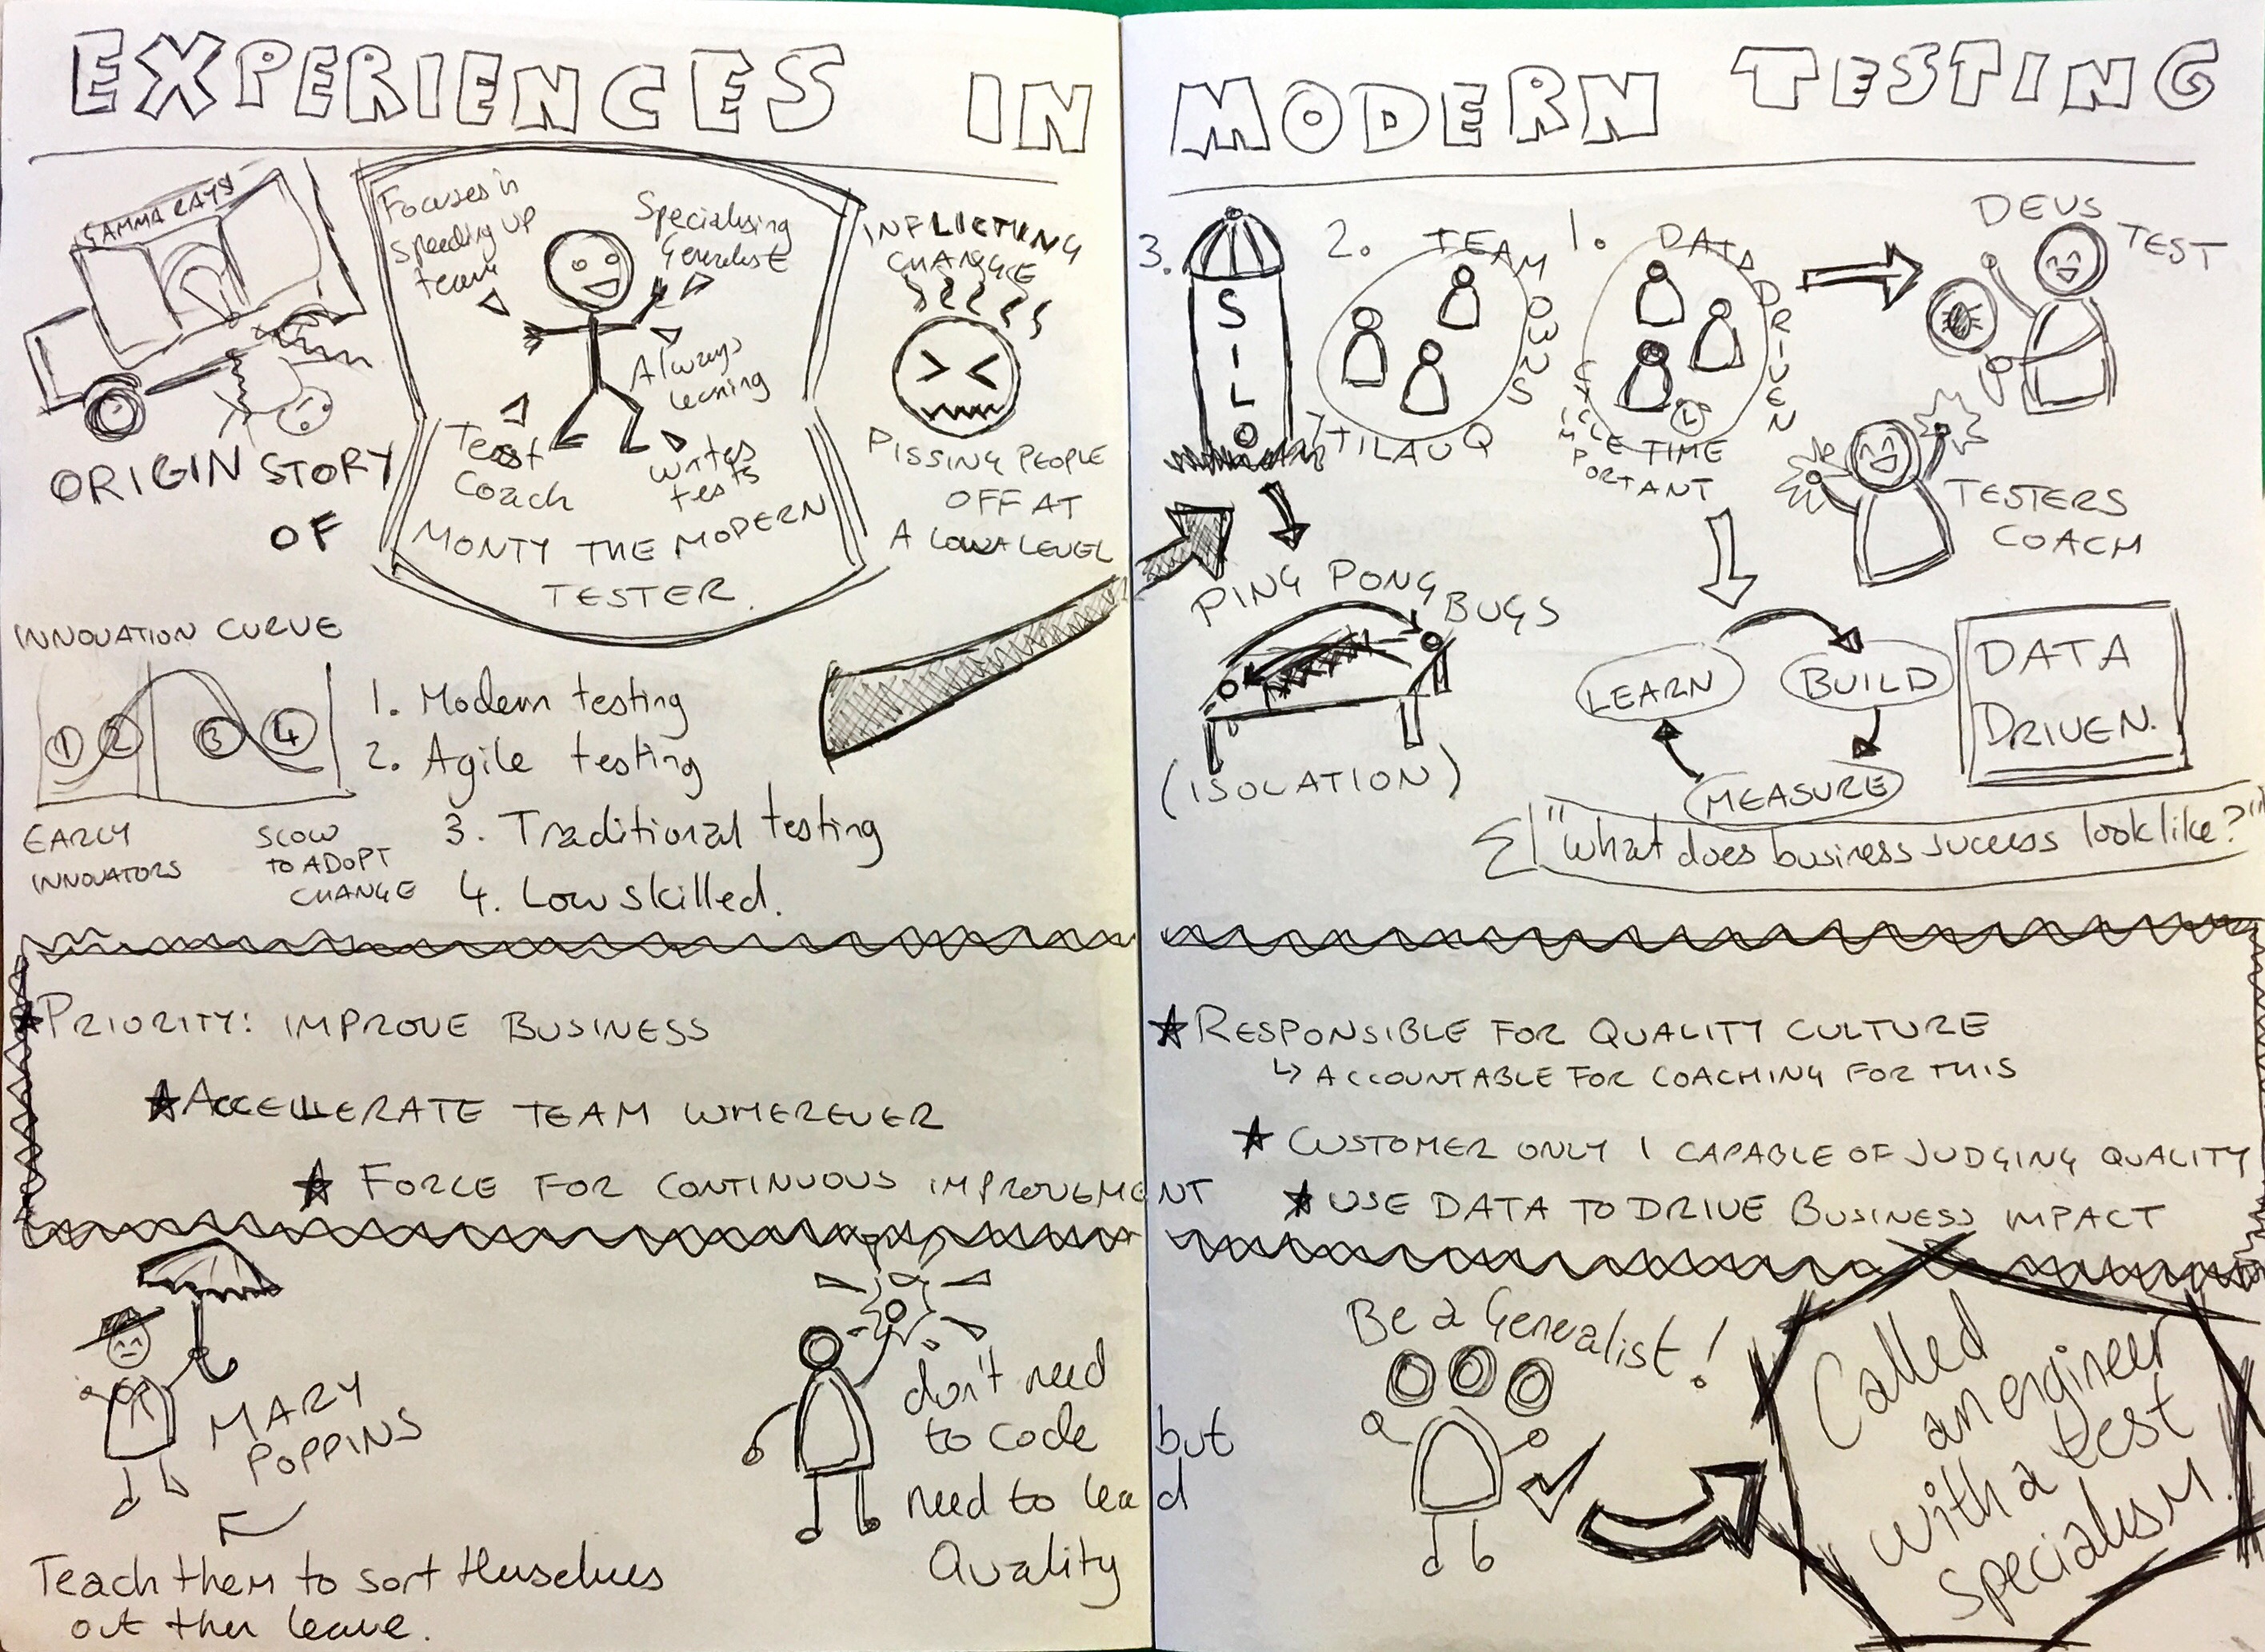 EXPERIENCES IN MODERN TESTING
GAMMA RAYS
ORIGIN STORY
OF
Focuses in
speeding up
team
Specialising
Generalist
Always
learning
Test
Coach
writes
tests
MONTY THE MODERN
TESTER.
INFLICTING
CHANGE
PISSING PEOPLE
OFF AT
A LOW LEVEL
INNOVATION CURVE
1 2 3 4
EARLY
INNOVATORS
SLOW
TO ADOPT
CHANGE
1. Modern testing
2. Agile testing
3. Traditional testing
4. Low skilled.
3.
SILO
2.
TEAM OWNS
QUALITY
1.
DATA DRIVEN
CYCLE TIME
IMPORTANT
DEVS
TEST
TESTERS
COACH
PING PONG
BUGS
(ISOLATION)
LEARN
BUILD
MEASURE
DATA
DRIVEN.
"What does business success look like?"
PRIORITY: IMPROVE BUSINESS
ACCELLERATE TEAM WHEREVER
FORCE FOR CONTINUOUS IMPROVEMENT
RESPONSIBLE FOR QUALITY CULTURE
↳ ACCOUNTABLE FOR COACHING FOR THIS
CUSTOMER ONLY 1 CAPABLE OF JUDGING QUALITY
USE DATA TO DRIVE BUSINESS IMPACT
MARY
POPPINS
Teach them to sort themselves
out then leave.
don't need
to code but
need to lead
Quality
Be a Generalist!
Called
an engineer
with a test
Specialism.